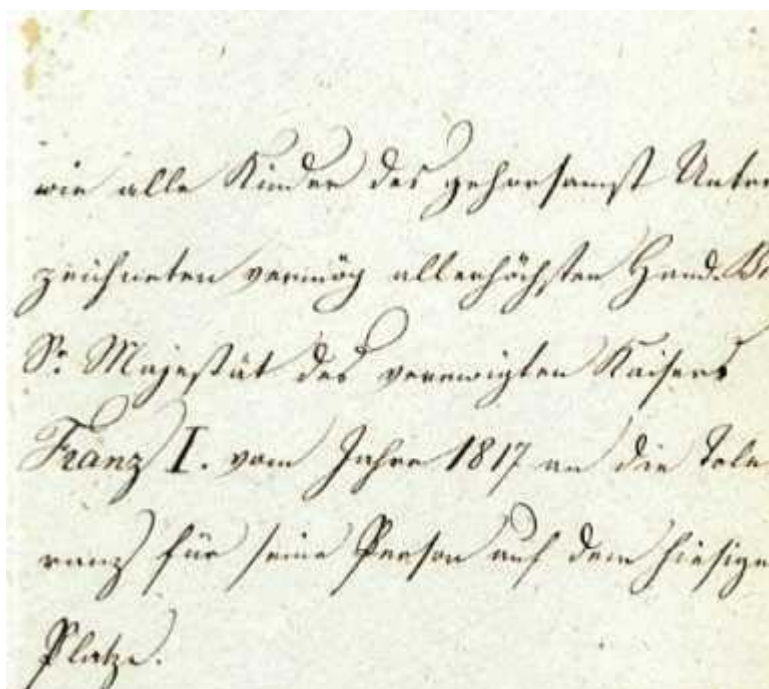 wie alle Kinder des gehorsamst Unter
zeichneten vermög allerhöchsten Hand-B
Sr. Majestät des verewigten Kaisers
Franz I. vom Jahre 1817 an die Tole
ranz für seine Person auf dem hiesige
Platze.